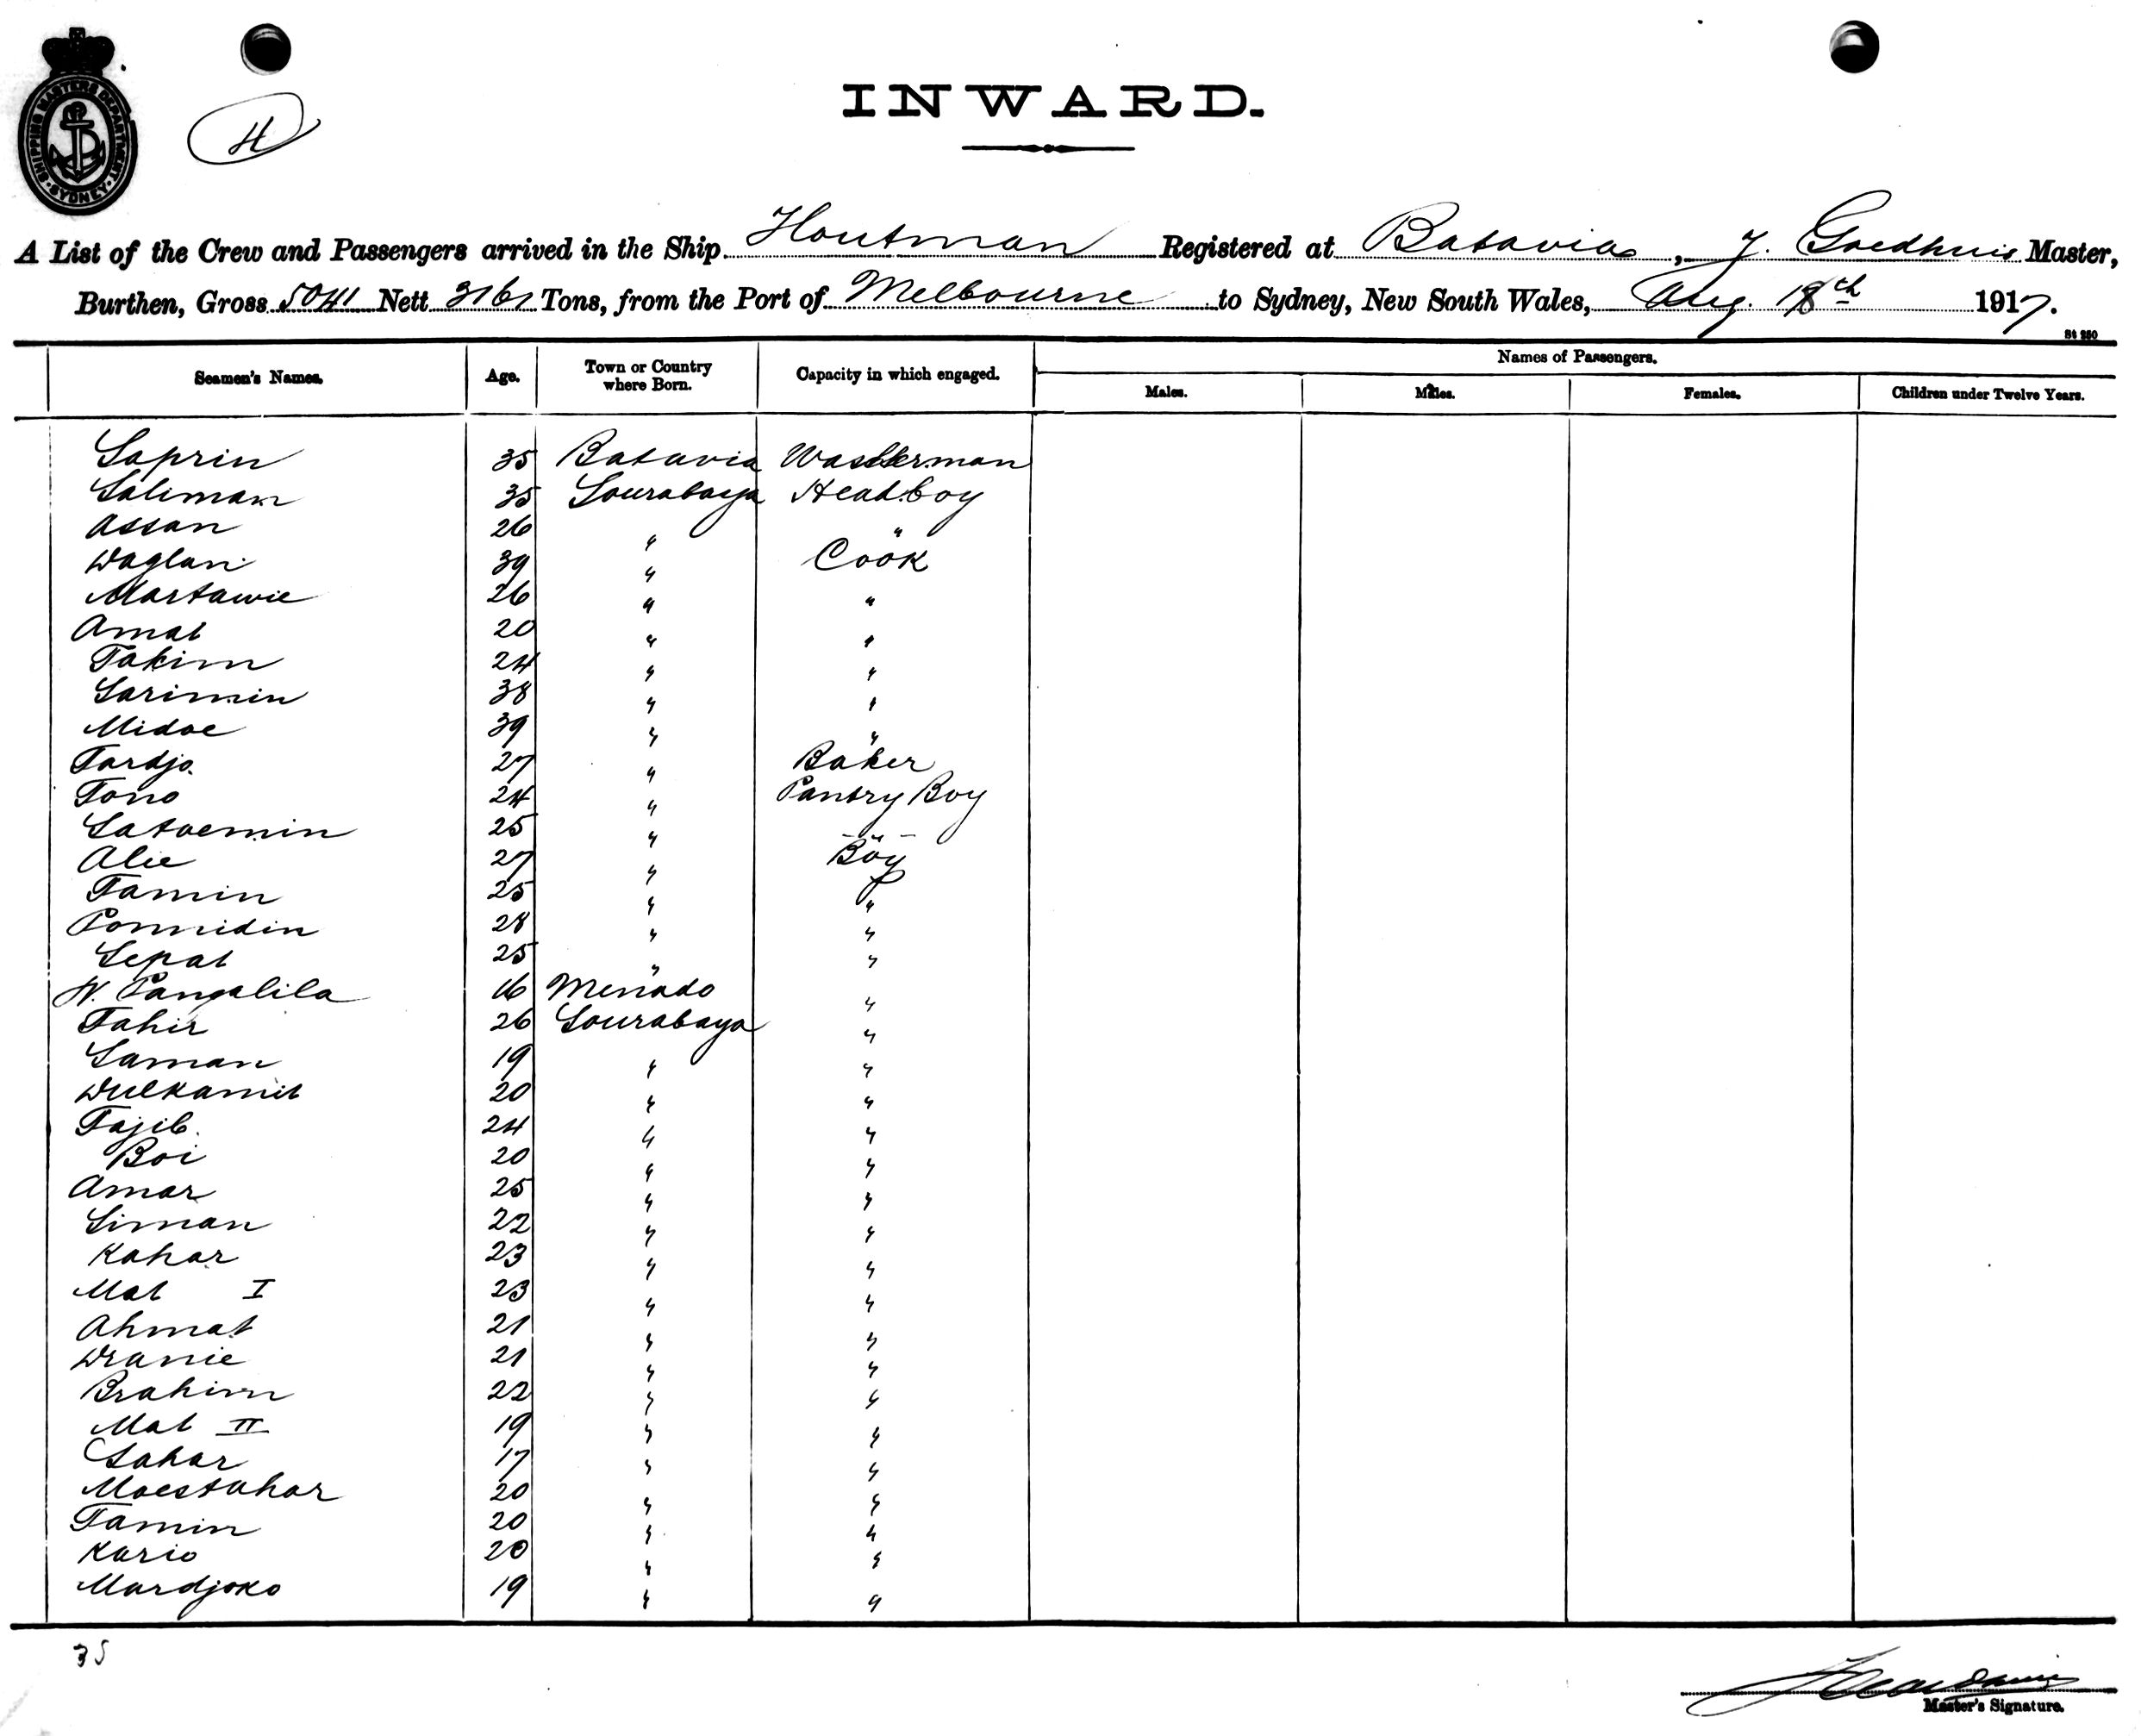 SHIPPING MASTERS DEPARTMENT · SYDNEY ·
H
INWARD.
A List of the Crew and Passengers arrived in the Ship Houtman Registered at Batavia, J. Goedhuis Master,
Burthen, Gross 5041 Nett 3161 Tons, from the Port of Melbourne to Sydney, New South Wales, Aug. 18th 1917.
St 250
Seamen's Names. Age. Town or Country where Born. Capacity in which engaged. Names of Passengers.
Males. Males. Females. Children under Twelve Years.
Saprin 35 Batavia Wasserman
Saliman 35 Sourabaya Headboy
Assan 26 " "
Waglan 39 " Cook
Martawie 26 " "
Amat 20 " "
Takim 24 " "
Sarimin 38 " "
Midoe 39 " "
Tardjo. 27 " Baker
Tono 24 " Pantry Boy
Satoemin 25 " - " -
Alie 27 " Boy
Tamin 25 " "
Ponnidin 28 " "
Sepat 25 " "
W. Pangalila 16 Menado "
Tahir 26 Sourabaya "
Saman 19 " "
Wulkamit 20 " "
Tajib. 24 " "
Boi 20 " "
Amar 25 " "
Siman 22 " "
Kahar 23 " "
Mat I 23 " "
Ahmat 21 " "
Wranie 21 " "
Brahim 22 " "
Mat II 19 " "
Sahar 17 " "
Moestahar 20 " "
Tamin 20 " "
Kario 20 " "
Mardjoko 19 " "
35
Master's Signature.